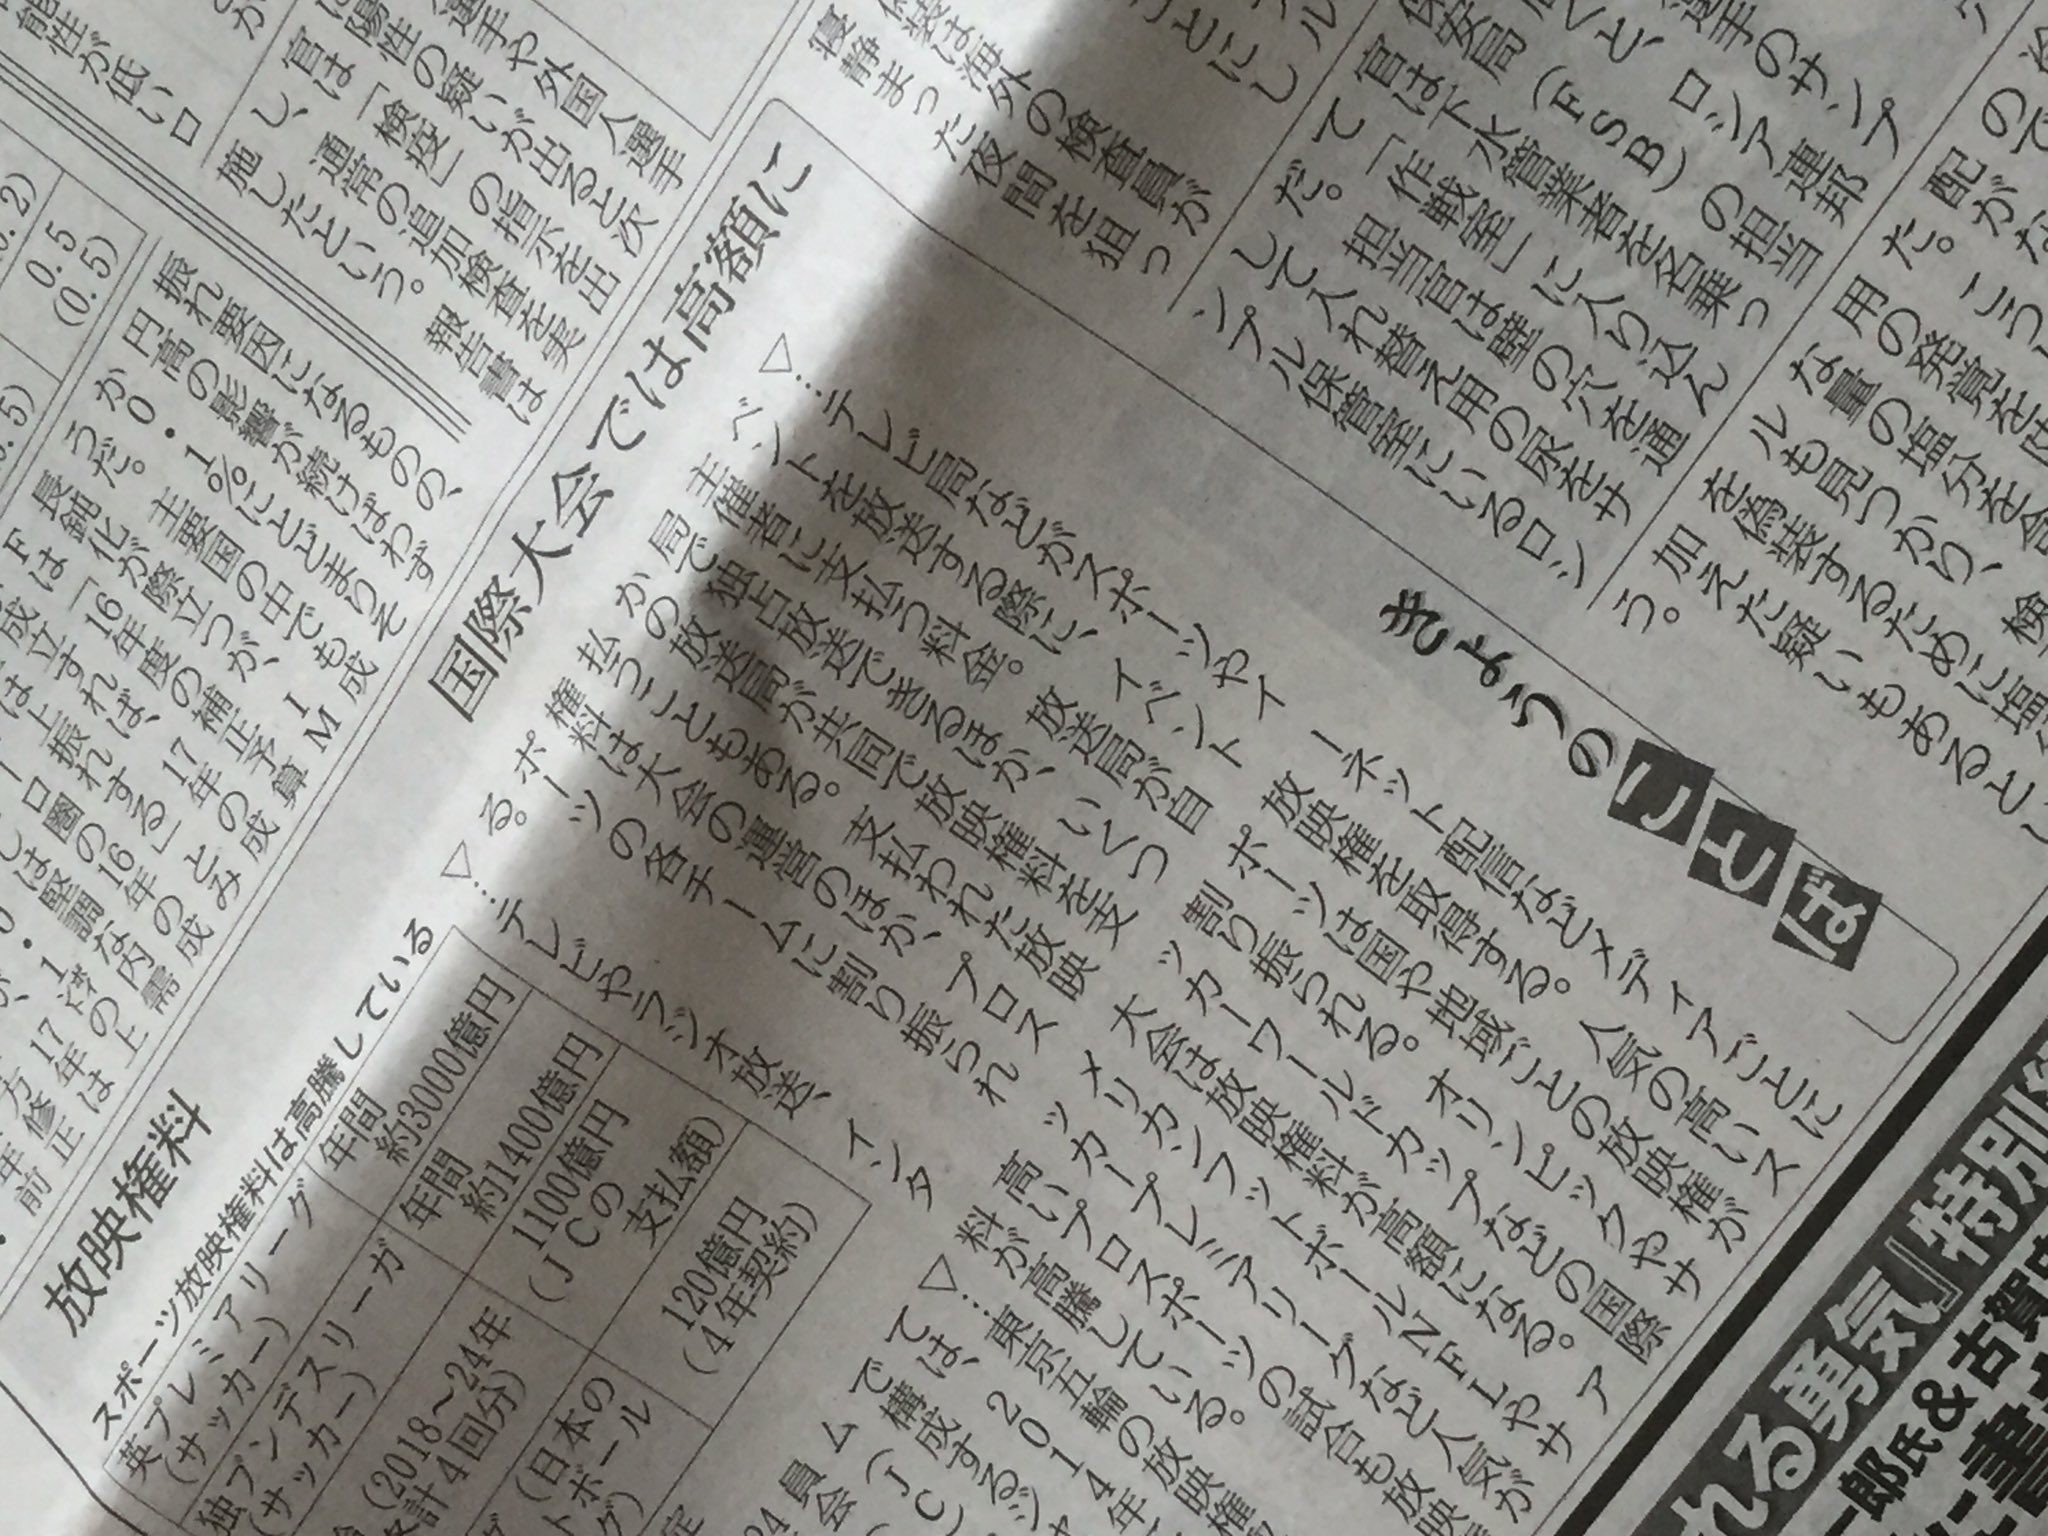 きょうのことば
放映権料
国際大会では高額に
▽…テレビ局などがスポーツやイ
ベントを放送する際に、イベント
主催者に支払う料金。放送局が自
局で独占放送できるほか、いくつ
かの放送局が共同で放映権料を支
払うこともある。支払われた放映
権料は大会の運営のほか、プロス
ポーツの各チームに割り振られ
る。
▽…テレビやラジオ放送、インタ
ーネット配信などメディアごとに
放映権を取得する。人気の高いス
ポーツは国や地域ごとの放映権が
割り振られる。オリンピックやサ
ッカーワールドカップなどの国際
大会は放映権料が高額になる。ア
メリカンフットボールNFLやサ
ッカープレミアリーグなど人気が
高いプロスポーツの試合も放映
料が高騰している。
▽…東京五輪の放映権
ては、2014年
で構成するジャ
ム(JC
員会
スポーツ放映権料は高騰している
英プレミアリーグ
(サッカー)
年間
約3000億円
独ブンデスリーガ
(サッカー)
年間
約1400億円
(2018~24年
計4回分)
1100億円
(JCの
支払額)
(日本の
120億円
(4年契約)
選手のサンプ
ロシア連邦
保安局(FSB)の担当
官は下水管業者を名乗っ
て「作戦室」に入り込ん
だ。担当官は壁の穴を通
して入れ替え用の尿をサ
ンプル保管室にいるロシ
ことにし
は海外の検査員が
寝静まった夜間を狙っ
配がな
た。こうし
用の発覚を
な量の塩分を含
ルも見つかり、検
を偽装するために塩
加えた疑いもあるとし
う。
選手や外国人選手
に陽性の疑いが出ると次
官は「検疫」の指示を出
し、通常の追加検査を実
施したという。報告書は
能性が低いロ
0.5
(0.5)
振れ要因になるものの、
円高の影響が続けばわず
か0・1%にとどまりそ
うだ。主要国の中でも成
長鈍化が際立つが、IM
Fは「16年度の補正予算
成立すれば、17年の成
は上振れする」とみ
ーロ圏の16年の成
は堅調な内需
れる勇気』特別
一郎氏&古賀